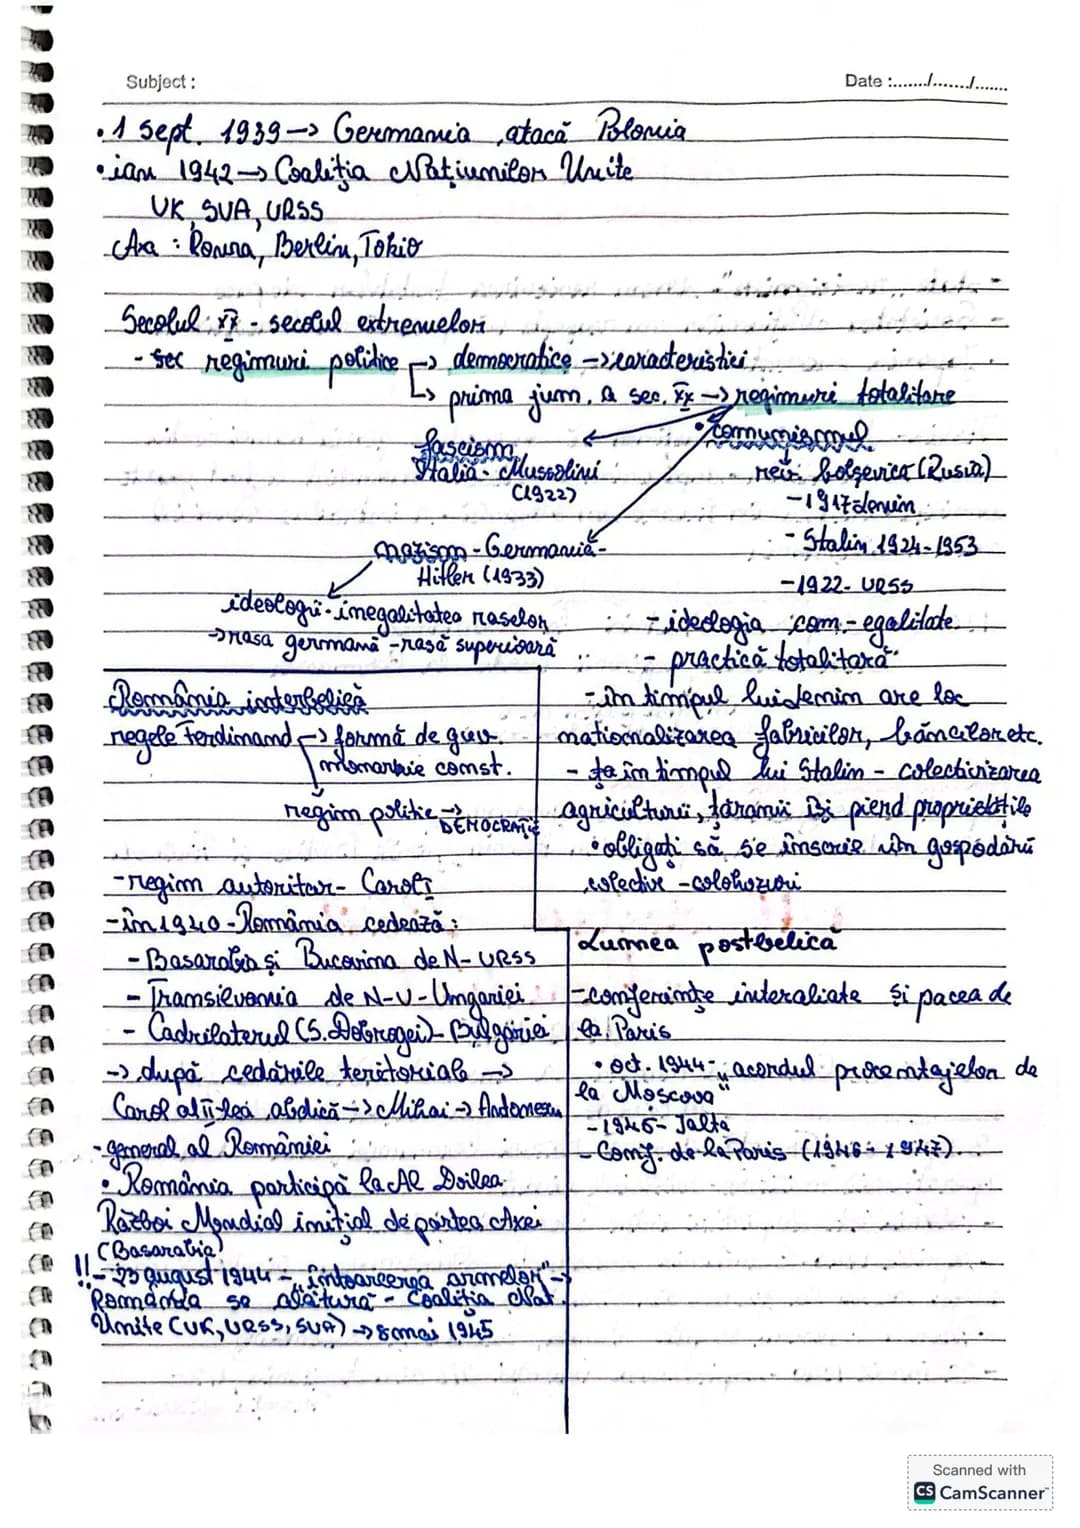 Subject :
Date :......./......./.......
• 1 sept. 1939 -> Germania atacă Polonia
• ian 1942 -> Coaliția Națiunilor Unite
UK, SUA, URSS
Axa : Roma, Berlin, Tokio
Secolul XX - secolul extremelor
- sec regimuri politice -> democratice -> caracteristici
-> prima jum. a sec. XX -> regimuri totalitare
fascism
Italia - Mussolini
(1922)
nazism - Germania -
Hitler (1933)
ideologii - inegalitatea raselor
-> rasa germană - rasă superioară
• comunismul
rev. bolșevică (Rusia)
- 1917 Lenin
- Stalin 1924-1953
- 1922 - URSS
- ideologia com. - egalitate
- practică totalitară
- în timpul lui Lenin are loc
naționalizarea fabricilor, băncilor etc.
- în timpul lui Stalin - colectivizarea
agriculturii, țăranii își pierd proprietățile
• obligați să se înscrie în gospodării
colective - colohozuri
România interbelică
regele Ferdinand -> formă de guv.
monarhie const.
regim politic ->
DEMOCRAȚIE
- regim autoritar - Carol I
- în 1940 - România cedează :
- Basarabia și Bucovina de N - URSS
- Transilvania de N-V - Ungariei
- Cadrilaterul (S. Dobrogei) - Bulgariei
-> după cedările teritoriale ->
Carol al II-lea abdică -> Mihai -> Antonescu
- general al României
• România participă la Al Doilea
Război Mondial inițial de partea Axei
(Basarabia)
!! - 23 august 1944 - „întoarcerea armelor" ->
România se alătură - Coaliția Nat.
Unite (UK, URSS, SUA) -> 8 mai 1945
Lumea postbelică
- conferințe interaliate și pacea de
la Paris
• oct. 1944 - „acordul procentajelor de
la Moscova"
- 1945 - Jalta
- Conf. de la Paris (1946 - 1947)
Scanned with
CS CamScanner